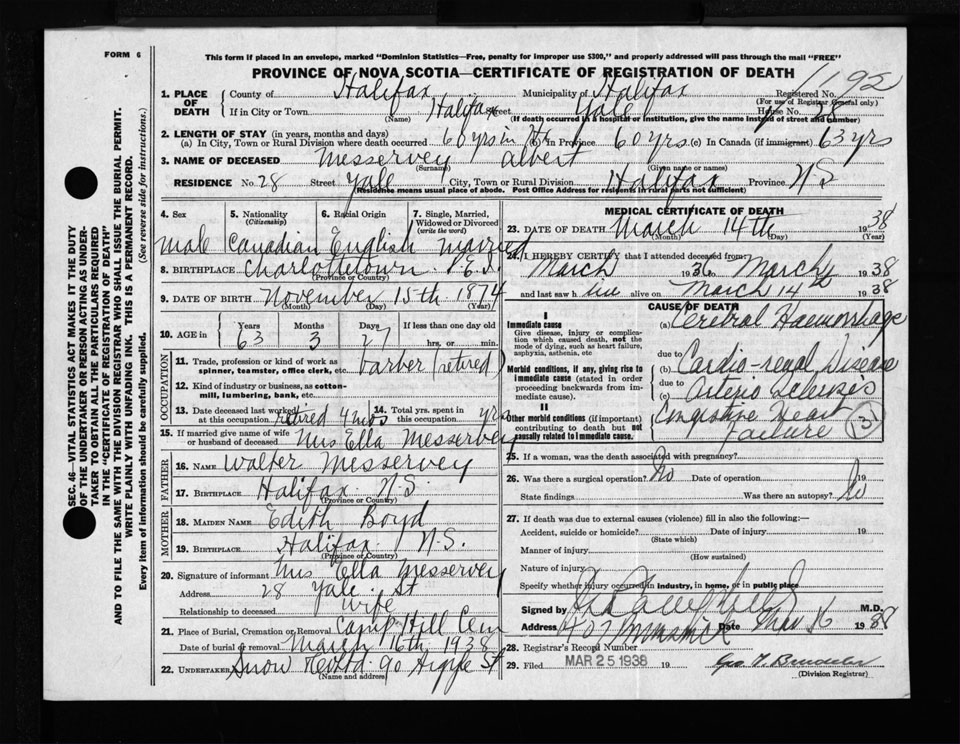 FORM 6
This form if placed in an envelope, marked "Dominion Statistics—Free, penalty for improper use $300," and properly addressed will pass through the mail "FREE"
PROVINCE OF NOVA SCOTIA—CERTIFICATE OF REGISTRATION OF DEATH
1195
1. PLACE OF DEATH County of Halifax Municipality of Halifax Registered No.
(For use of Registrar General only)
If in City or Town Halifax Street Yale House No. 28
(Name) (If death occurred in a hospital or institution, give the name instead of street and number)
2. LENGTH OF STAY (in years, months and days)
(a) In City, Town or Rural Division where death occurred 60 yrs in (b) In Province 60 yrs (c) In Canada (if immigrant) 63 yrs
3. NAME OF DECEASED Messervey Albert
(Surname) (Given name or names)
RESIDENCE No. 28 Street Yale City, Town or Rural Division Halifax Province N-S
(Residence means usual place of abode. Post Office Address for residents in rural parts not sufficient)
4. Sex 5. Nationality (Citizenship) 6. Racial Origin 7. Single, Married, Widowed or Divorced (write the word)
Male Canadian English married
8. BIRTHPLACE Charlottetown P.E.I.
(Province or Country)
9. DATE OF BIRTH November 15th 1874
(Month) (Day) (Year)
10. AGE in Years Months Days If less than one day
63 3 27 hrs. or min.
OCCUPATION
11. Trade, profession or kind of work as spinner, teamster, office clerk, etc. barber (retired)
12. Kind of industry or business, as cotton-mill, lumbering, bank, etc.
13. Date deceased last worked at this occupation retired 4 14. Total yrs. spent in this occupation yrs
15. If married give name of wife or husband of deceased Mrs Ella Messervey
FATHER
16. NAME Walter Messervey
17. BIRTHPLACE Halifax N.S.
(Province or Country)
MOTHER
18. MAIDEN NAME Edith Boyd
19. BIRTHPLACE Halifax N.S.
(Province or Country)
20. Signature of informant Mrs Ella Messervey
Address 28 Yale St
Relationship to deceased wife
21. Place of Burial, Cremation or Removal Camp Hill Cem
Date of burial or removal March 16th 1938
22. UNDERTAKER Snow 90 St
(Name and address)
MEDICAL CERTIFICATE OF DEATH
23. DATE OF DEATH March 14th 1938
(Month) (Day) (Year)
24. I HEREBY CERTIFY that I attended deceased from
March 1936 to March 1938
and last saw h alive on March 14th 1938
CAUSE OF DEATH
I
Immediate cause (a) Cerebral Haemorrhage
Give disease, injury or complication which caused death, not the mode of dying, such as heart failure, asphyxia, asthenia, etc
due to
Morbid conditions, if any, giving rise to immediate cause (stated in order proceeding backwards from immediate cause).
(b) Cardio-renal Disease
due to
(c) Arterio Sclerosis
II
Other morbid conditions (if important) contributing to death but not causally related to immediate cause.
Congestive Heart Failure 3
25. If a woman, was the death associated with pregnancy?
26. Was there a surgical operation? No Date of operation 19
State findings Was there an autopsy? No
27. If death was due to external causes (violence) fill in also the following:—
Accident, suicide or homicide? Date of injury 19
(State which)
Manner of injury
(How sustained)
Nature of injury
Specify whether injury occurred in industry, in home, or in public place
Signed by M.D.
Address 407 Brunswick Date Mar 16 1938
28. Registrar's Record Number
29. Filed MAR 25 1938 19
(Division Registrar)
SEC. 46—VITAL STATISTICS ACT MAKES IT THE DUTY OF THE UNDERTAKER OR PERSON ACTING AS UNDERTAKER TO OBTAIN ALL THE PARTICULARS REQUIRED IN THE "CERTIFICATE OF REGISTRATION OF DEATH"
AND TO FILE THE SAME WITH THE DIVISION REGISTRAR WHO SHALL ISSUE THE BURIAL PERMIT.
WRITE PLAINLY WITH UNFADING INK. THIS IS A PERMANENT RECORD.
Every item of information should be carefully supplied. (See reverse side for instructions.)